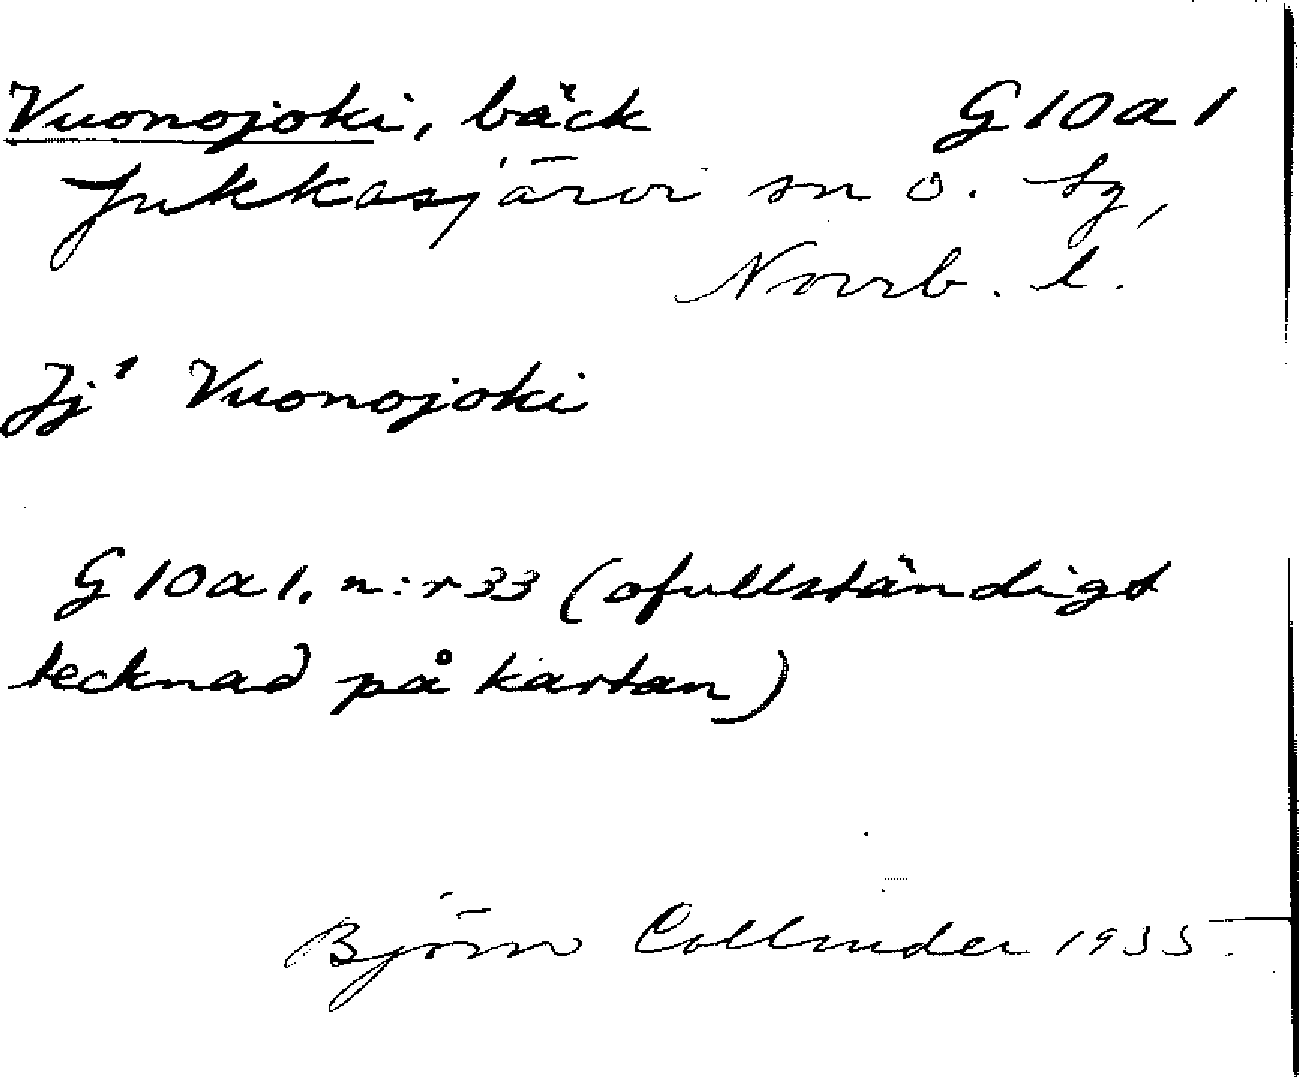 Vuonojoki, bäck G10a1
Jukkasjärvi sn o. tg,
Norrb. l.
Jj¹ Vuonojoki
G10a1. n:r 33 (ofullständigt
tecknad på kartan)
Björn Collinder 1935